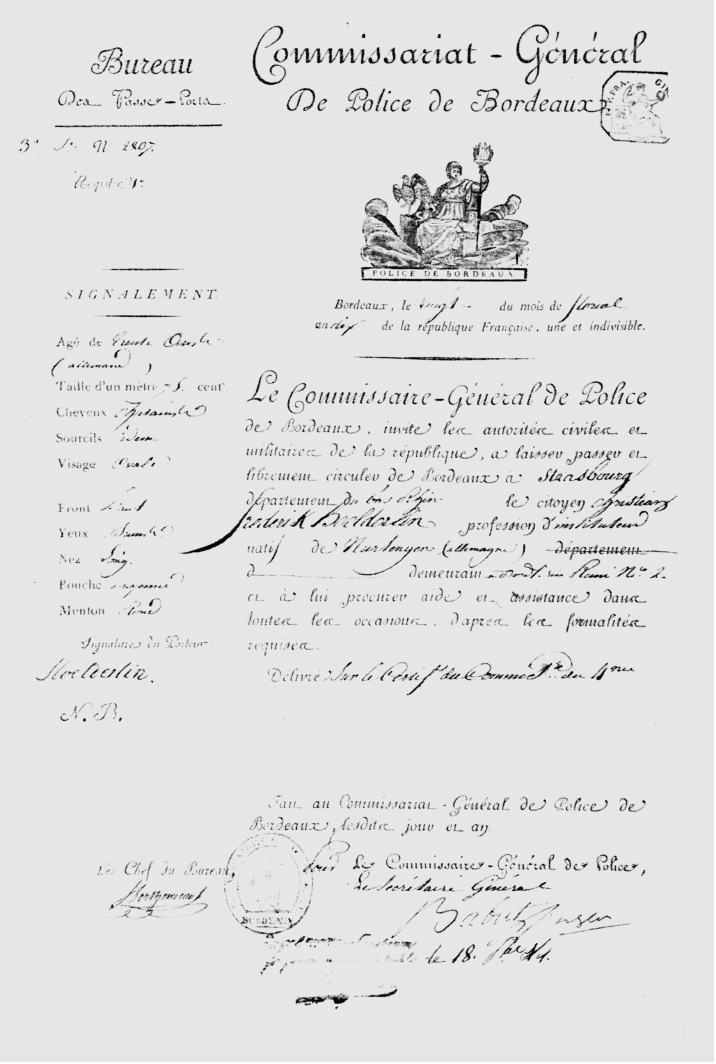 Bureau
Des Passe-Ports.
Nº 1807.
Registre
SIGNALEMENT.
Agé de trente
(allemand)
Taille d'un mètre 75. centr
Cheveux
Sourcils idem
Visage ovale
Front haut
Yeux
Nez long
Bouche moyenne
Menton rond
Signature du Porteur.
Hoelderlin.
N. B.
Commissariat-Général
De Police de Bordeaux.
POLICE DE BORDEAUX
Bordeaux, le vingt du mois de floréal
an dix de la république Française, une et indivisible.
Le Commissaire-Général de Police
de Bordeaux, invite les autorités civiles et
militaires de la république, à laisser passer et
librement circuler de Bordeaux à Strasbourg
département du bas rhin le citoyen christian
frederik Hoelderlin profession d'instituteur
natif de Nurtengen (allemagne) département
d demeurant à Bord. rue Nº 2.
et à lui procurer aide et assistance dans
toutes les occasions, d'après les formalités
requises.
Délivré sur le Certif. du Commre du 4me
Fait au Commissariat-Général de Police de
Bordeaux, lesdits jour et an
Les Chef du Bureau,
pour Le Commissaire-Général de Police,
Le Secrétaire Général
BORDEAUX
le 18.